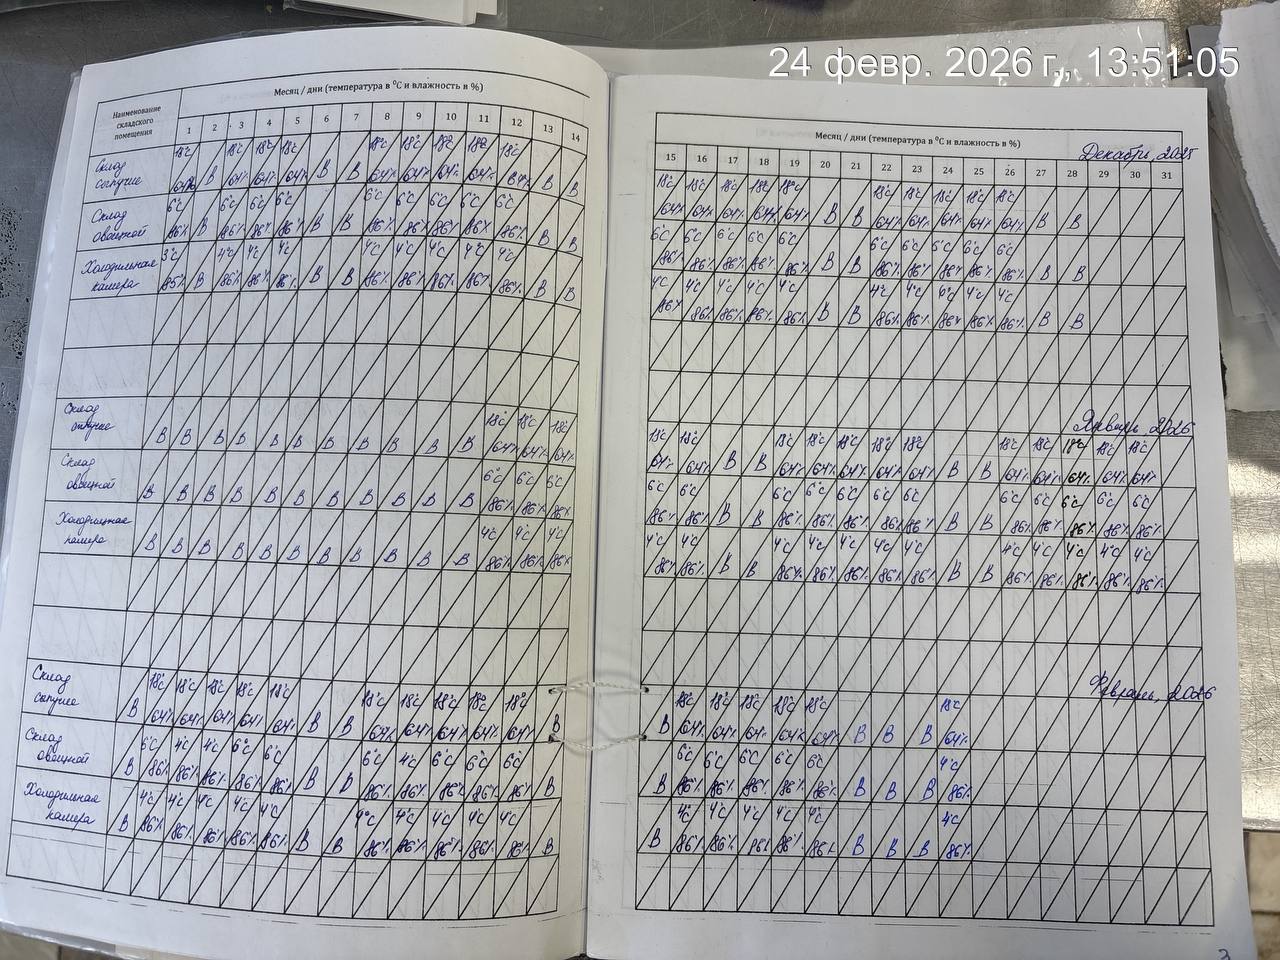 24 февр. 2026 г., 13:51:05
Наименование складского помещения
Месяц / дни (температура в °С и влажность в %)
1 2 3 4 5 6 7 8 9 10 11 12 13 14
Склад сыпучие
18°С 18°С 18°С 18°С 18°С 18°С 18°С 18°С 18°С
64% В 64% 64% 64% В В 64% 64% 64% 64% 64% В В
Склад овощной
6°С 6°С 6°С 6°С 6°С 6°С 6°С 6°С 6°С
86% В 86% 86% 86% В В 86% 86% 86% 86% 86% В В
Холодильная камера
3°С 4°С 4°С 4°С 4°С 4°С 4°С 4°С 4°С
85% В 86% 86% 86% В В 86% 86% 86% 86% 86% В В
Склад
18°С 18°С 18°С
В В В В В В В В В В В 64% 64% 64%
Склад овощной
6°С 6°С 6°С
В В В В В В В В В В В 86% 86% 86%
Холодильная камера
4°С 4°С 4°С
В В В В В В В В В В В 86% 86% 86%
Склад сыпучие
18°С 18°С 18°С 18°С 18°С 18°С 18°С 18°С 18°С 18°С
В 64% 64% 64% 64% 64% В В 64% 64% 64% 64% 64% В
Склад овощной
6°С 4°С 4°С 6°С 6°С 6°С 4°С 6°С 6°С 6°С
В 86% 86% 86% 86% 86% В В 86% 86% 86% 86% 86% В
Холодильная камера
4°С 4°С 4°С 4°С 4°С 4°С 4°С 4°С 4°С 4°С
В 86% 86% 86% 86% 86% В В 86% 86% 86% 86% 86% В
Месяц / дни (температура в °С и влажность в %)
Декабрь, 2025
15 16 17 18 19 20 21 22 23 24 25 26 27 28 29 30 31
18°С 18°С 18°С 18°С 18°С 18°С 18°С 18°С 18°С 18°С
64% 64% 64% 64% 64% В В 64% 64% 64% 64% 64% В В
6°С 6°С 6°С 6°С 6°С 6°С 6°С 6°С 6°С 6°С
86% 86% 86% 86% 86% В В 86% 86% 86% 86% 86% В В
4°С 4°С 4°С 4°С 4°С 4°С 4°С 4°С 4°С 4°С
86% 86% 86% 86% 86% В В 86% 86% 86% 86% 86% В В
Январь 2026
18°С 18°С 18°С 18°С 18°С 18°С 18°С 18°С 18°С 18°С 18°С 18°С
64% 64% В В 64% 64% 64% 64% 64% В В 64% 64% 64% 64% 64%
6°С 6°С 6°С 6°С 6°С 6°С 6°С 6°С 6°С 6°С 6°С 6°С
86% 86% В В 86% 86% 86% 86% 86% В В 86% 86% 86% 86% 86%
4°С 4°С 4°С 4°С 4°С 4°С 4°С 4°С 4°С 4°С 4°С 4°С
86% 86% В В 86% 86% 86% 86% 86% В В 86% 86% 86% 86% 86%
Февраль, 2026
18°С 18°С 18°С 18°С 18°С 18°С
В 64% 64% 64% 64% 64% В В В 64%
6°С 6°С 6°С 6°С 6°С 4°С
В 86% 86% 86% 86% 86% В В В 86%
4°С 4°С 4°С 4°С 4°С 4°С
В 86% 86% 86% 86% 86% В В В 86%